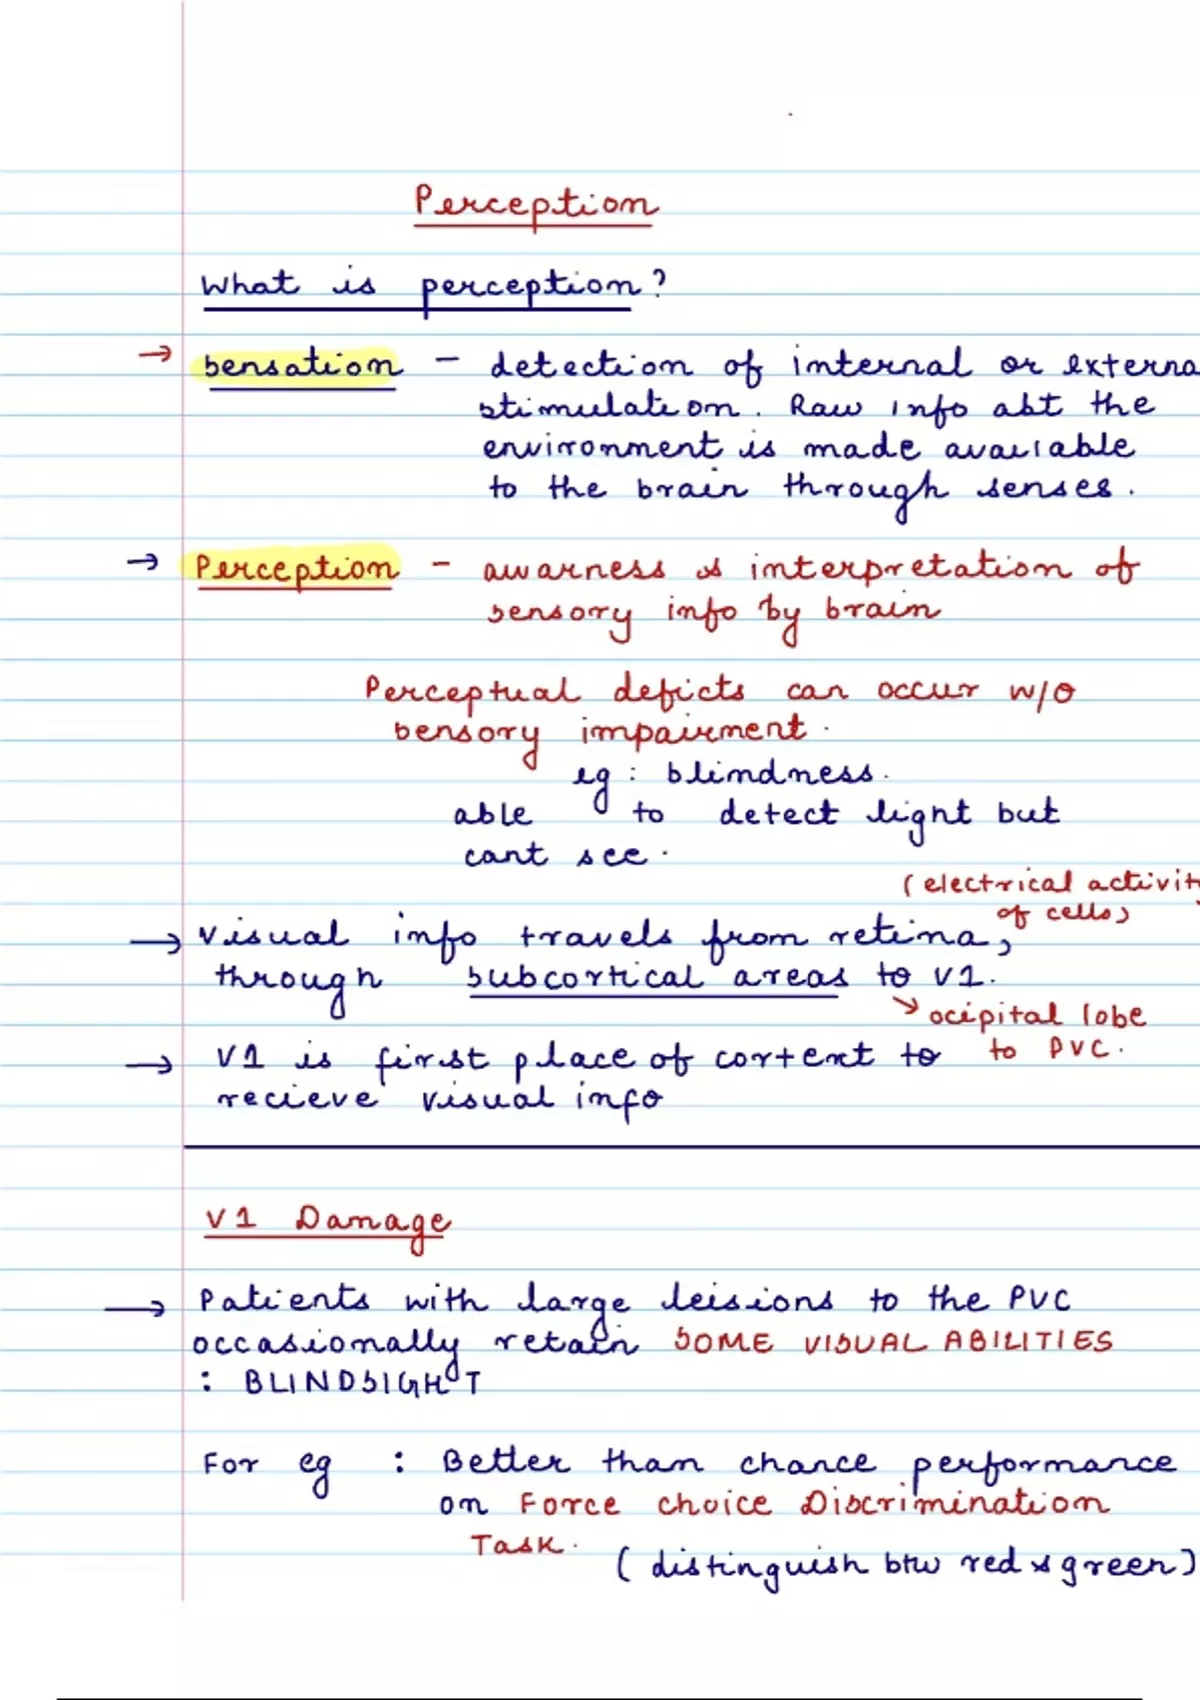 Perception
What is perception?
→ Sensation - detection of internal or externa
stimulation. Raw info abt the
environment is made available
to the brain through senses.
→ Perception - awarness & interpretation of
sensory info by brain
Perceptual deficts can occur w/o
sensory impairment.
eg : blindness.
able to detect light but
cant see.
(electrical activity
of cells)
→ visual info travels from retina,
through subcortical areas to V1.
↘ ocipital lobe
to PVC.
→ V1 is first place of cortext to
recieve visual info
V1 Damage
→ Patients with large leisions to the PVC
occasionally retain SOME VISUAL ABILITIES
: BLINDSIGHT
For eg : Better than chance performance
on Force choice Discrimination
Task.
(distinguish btw red & green)